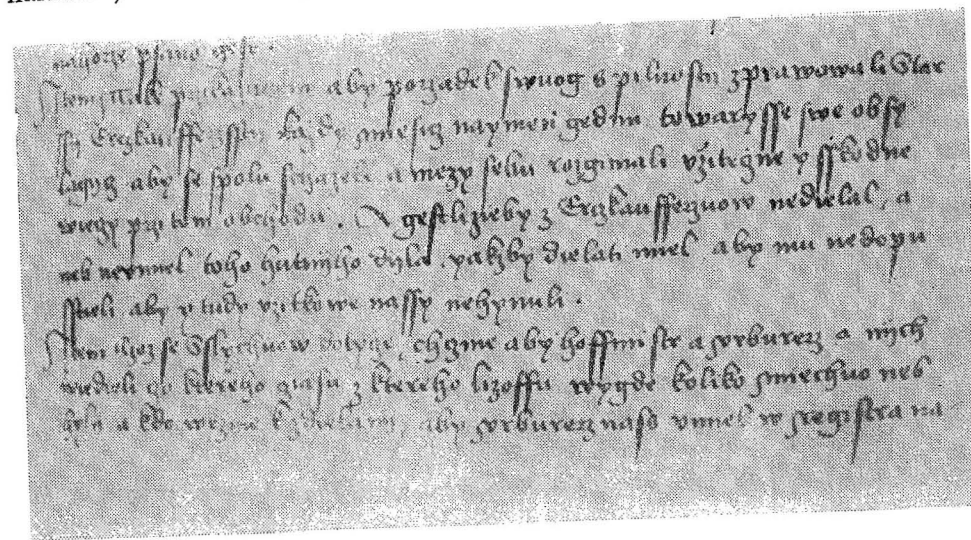 nahorze psano gest.
Item Take przikazugem aby porzadek swuog s pilnosti zprawowali Star
ssy Erczkaufferzsstij kazdy miesicz naymen gednu towarysse swe obsy
lagicz aby se spolu schazeli a mezy sebu rozgimali vzitegne y sskodne
wieczy przi tom obchodu. A gestlizeby z Erczkaufferzuow nedielal, a
neb neumiel toho hutniho dila, yakzby dielati miel aby mu nedopu
sstieli aby y tudy vzitkowe nassy nehynuli.
Item czoz se Sslychuow dotycze, chczme aby hoffmistr a vrburerz a mych
wiedieli do ktereho czasu z ktereho lizoffu wygde koliko smiechuo neb
a kdo wezme k dielani, aby vrburerz nass vmiel w registra na